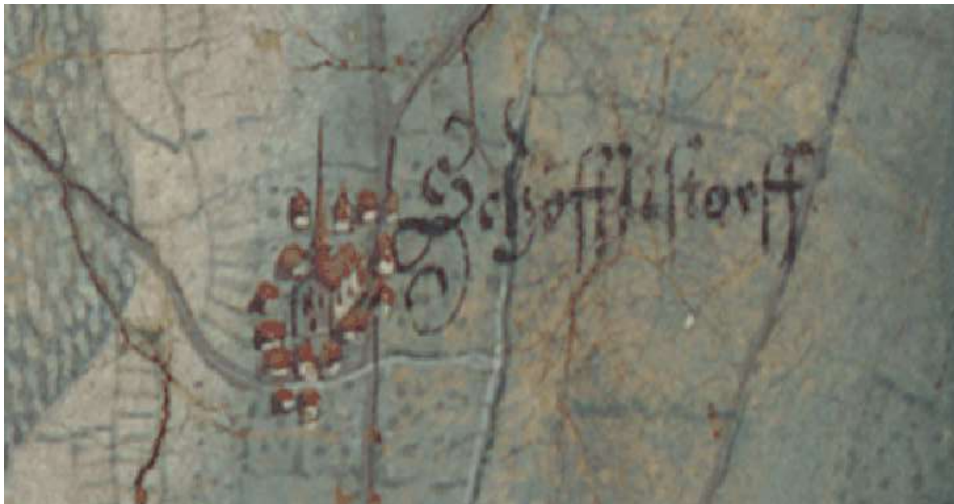 Schöfflistorff